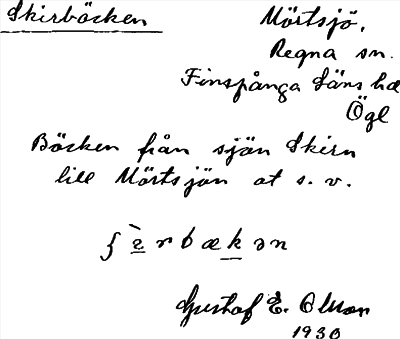 Skirbäcken
Mörtsjö,
Regna sn.
Finspånga läns hd
Ögl
Bäcken från sjön Skirn
till Mörtsjön at s. v.
ʃì̱rbæḵən
Gustaf E. Olsson
1930